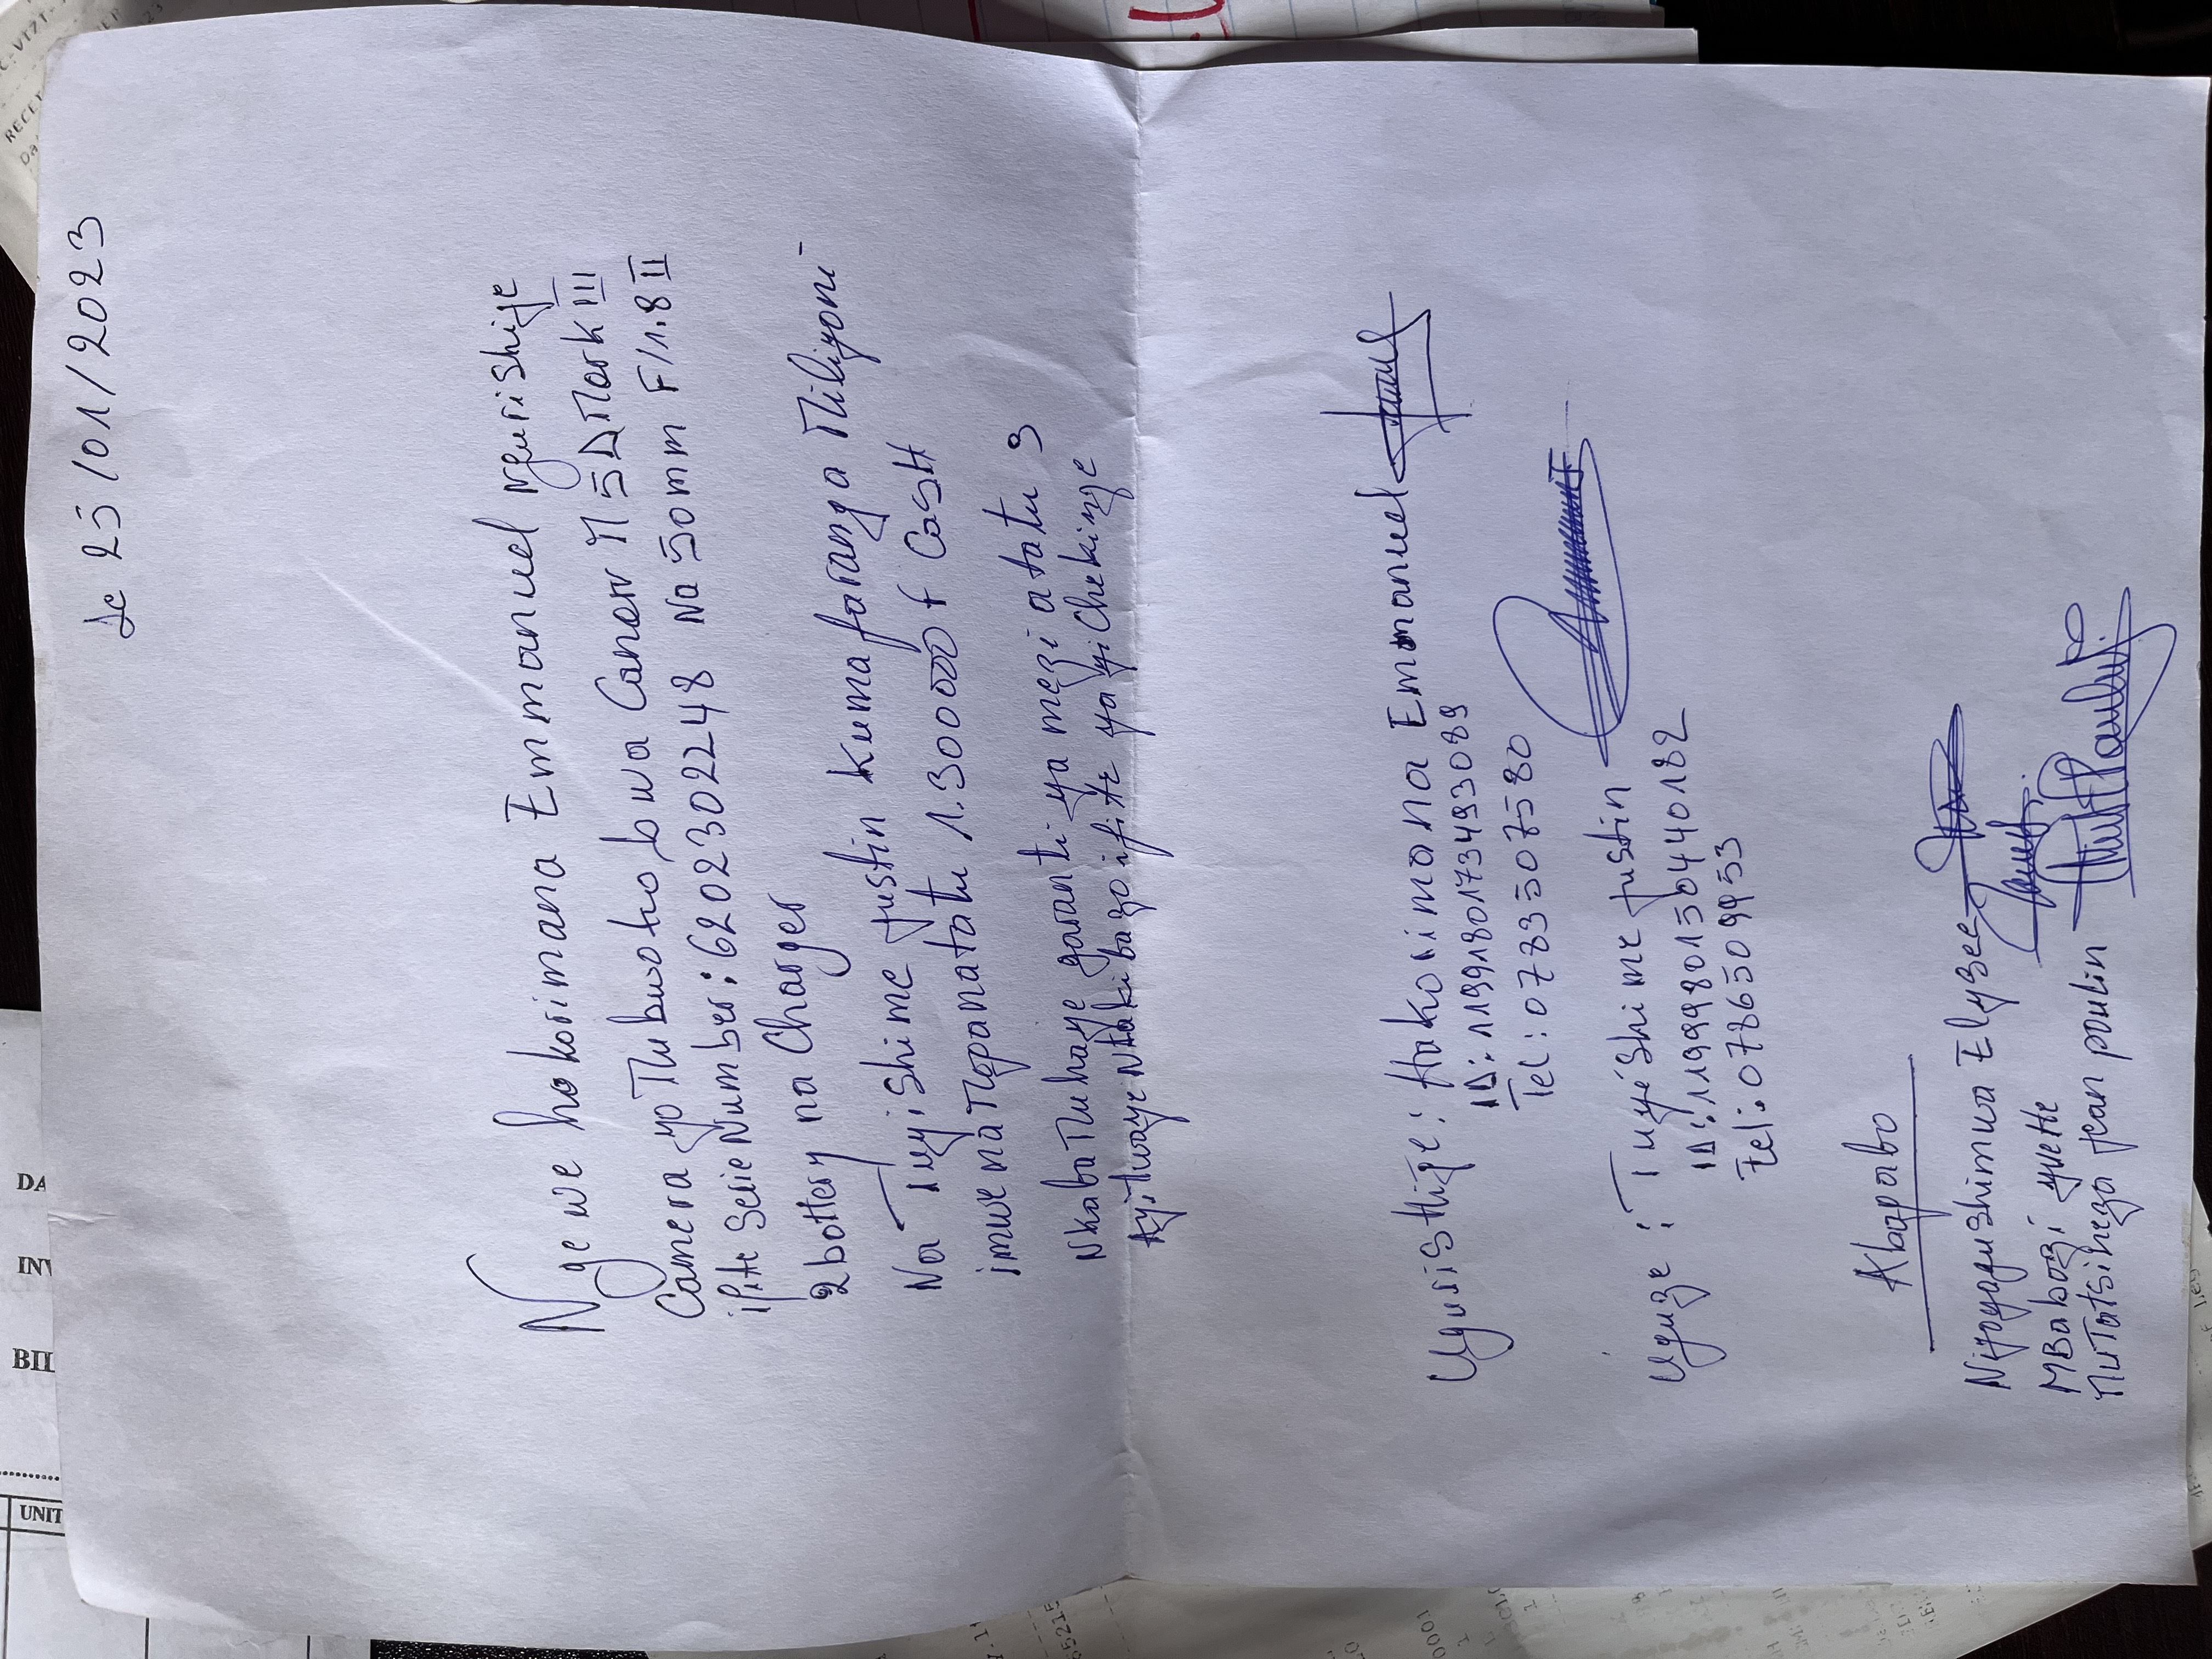 Le 25/01/2023
Ngewe hakorimana Emmanuel ngurishije
Camera yo Mu bwoko bwa Canon M 5D Mark III
ifite Serie Number: 6202302248 Na 50mm F/1.8 II
2 battery na Charger
Na Tuyishime Justin kuma faranga Miliyoni
imwe na Maganatatu 1.300000 f CasH
Nkaba Muhaye garanti ya mezi atatu 3
Ayitwaye Ntakibazo ifite yayi Chekinze
UgurisHije: Hakorimana Emmanuel
ID: 1199180173493089
Tel: 0783507580
Uguze: Tuyishime Justin
ID: 1199980150440182
Tel: 0786509953
Abagabo
Niyogushimwa Elysee
MBabazi yvette
MuTatsineza Jean paulin
DA
INV
BIL
UNIT
RECEI